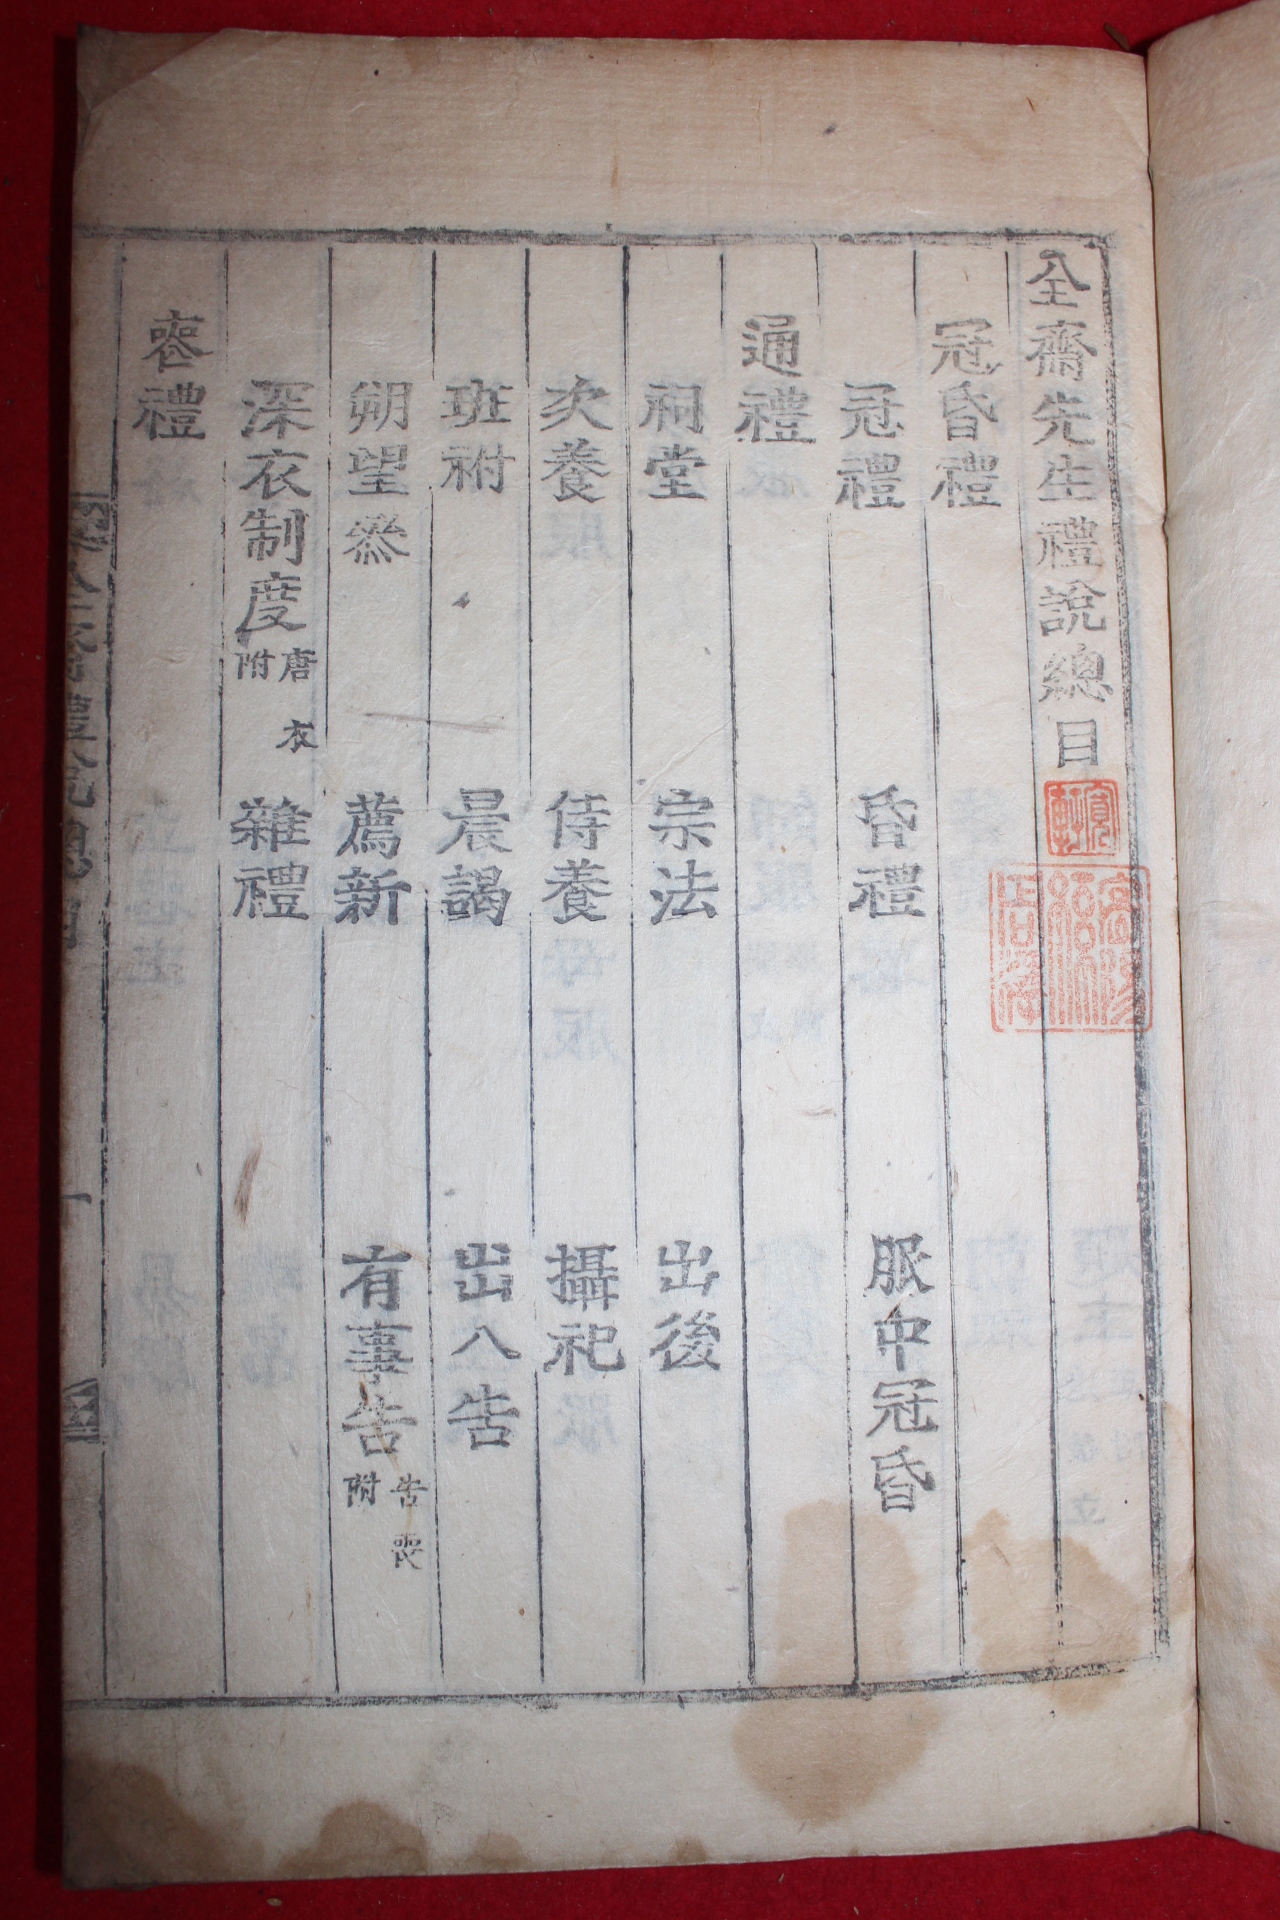 全齋先生禮說總目
冠昏禮
冠禮 昏禮 服中冠昏
通禮
祠堂 宗法 出後
次養 侍養 攝祀
班祔 晨謁 出入告
朔望叅 薦新 有事告 告喪附
深衣制度 唐衣附 雜禮
喪禮
全齋禮說總目 一